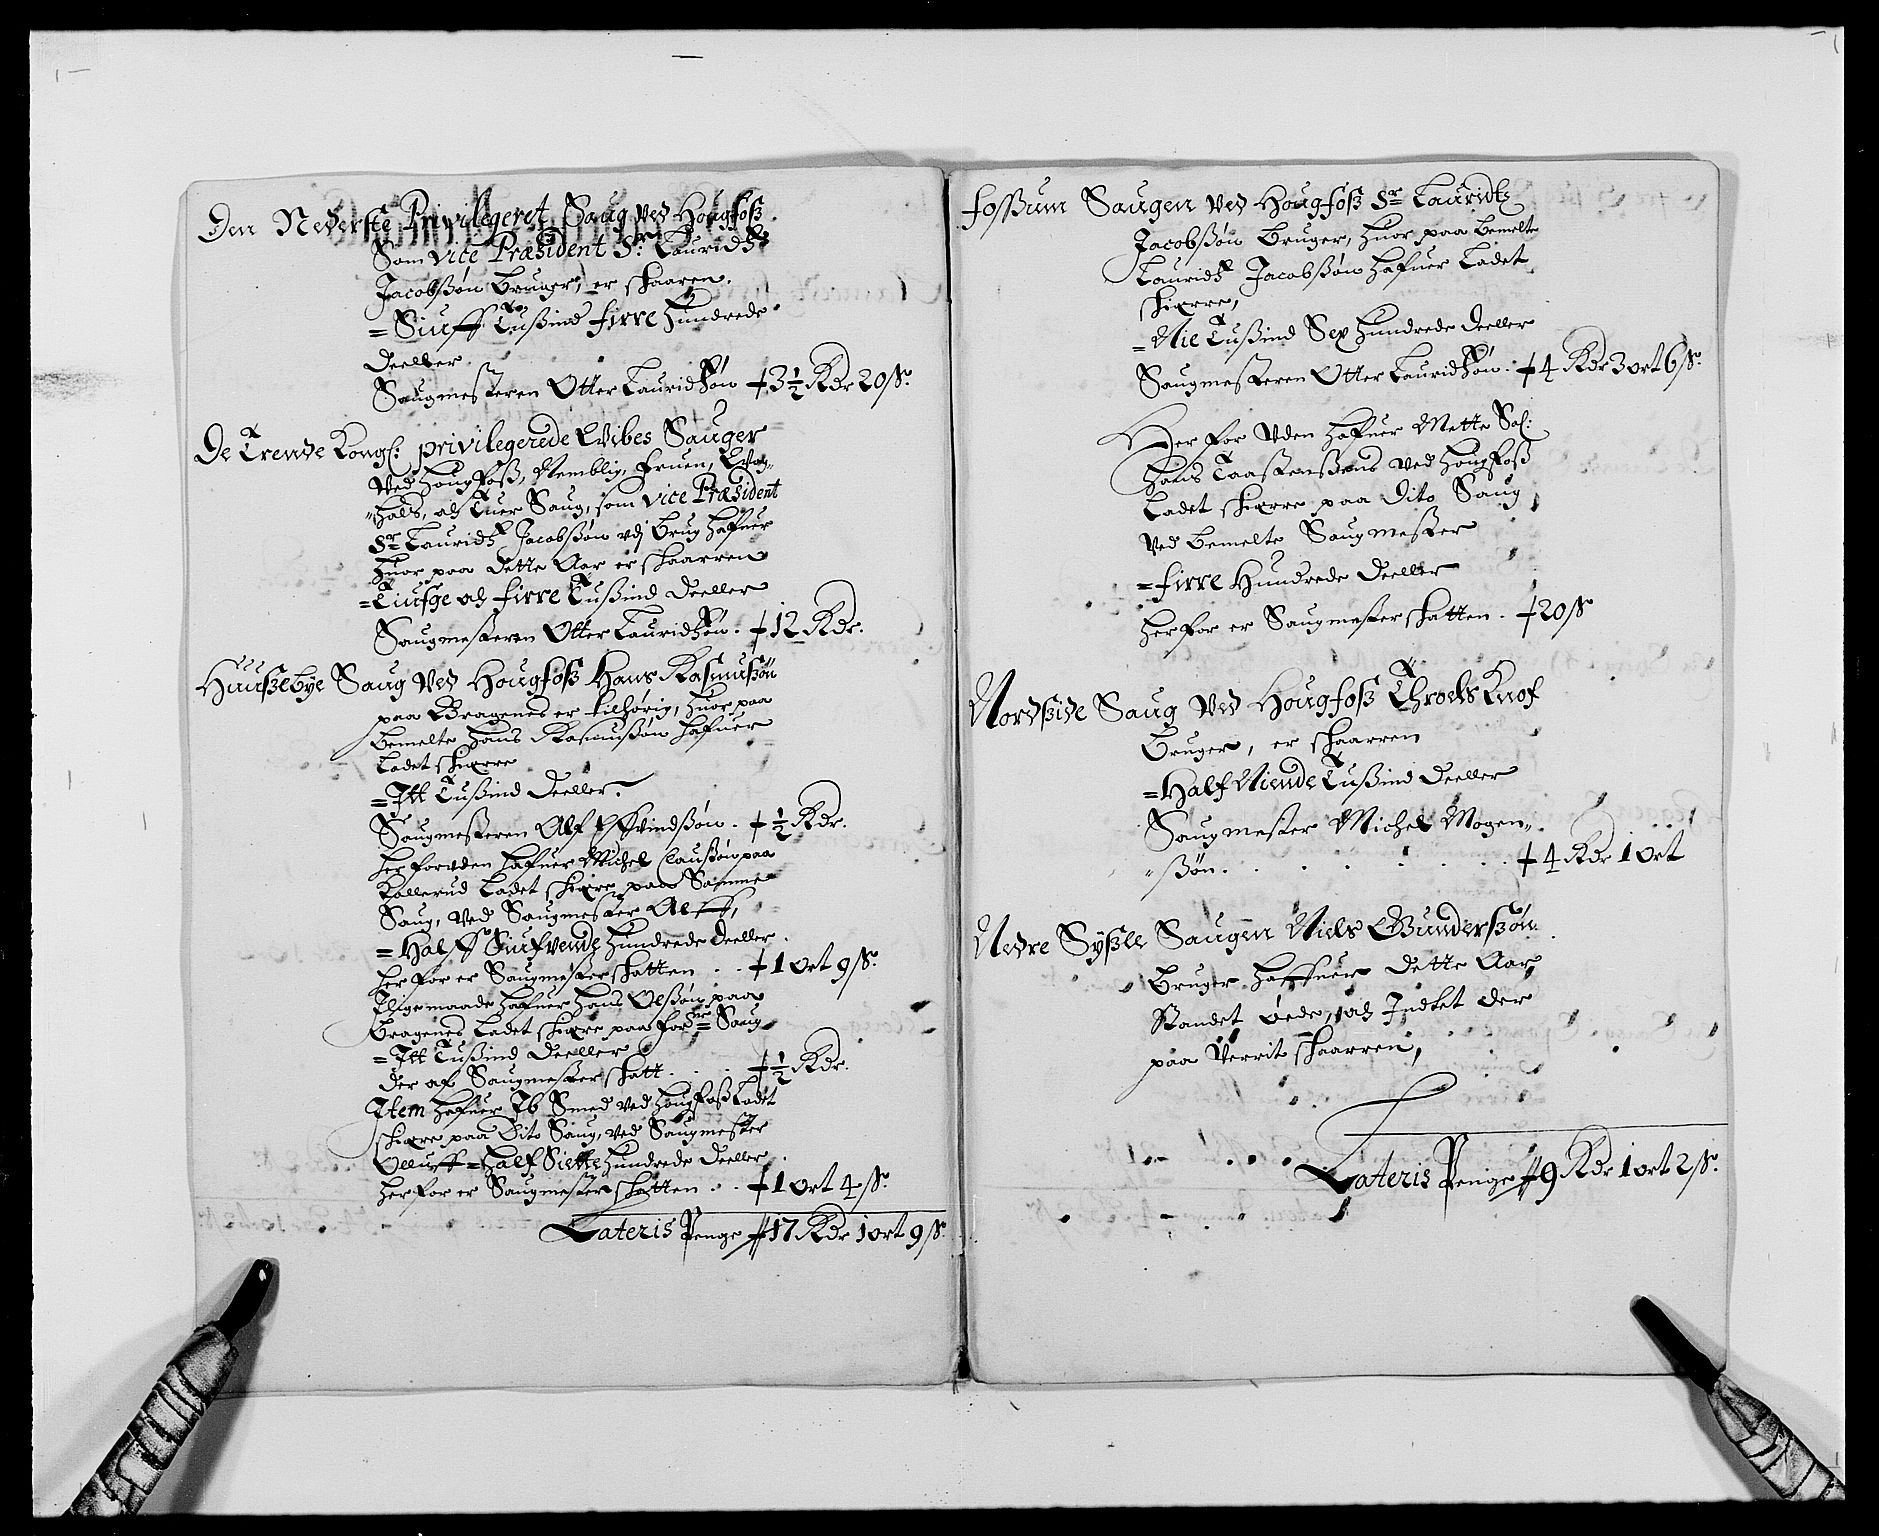 Den Nederste Privilegeret Saug ved Hougfosz
Som vice Præsident Sr. Lauridtz
Jacobszøn Bruger, er skaaren.
= Siuff Tuszind firre Hundrede
deeller
Saugmesteren Otter Lauridtzøn + 3½ Rdr 20 ss.
De Trende Kongl: privilegerede Wibes Sauger
Ved Hougfosz, Nemblig, Fruen,
hals, och Saug, som vice Præsident
Sr. Lauridtz Jacobszøn udj Brug hafuer
huor paa dette Aar er skaarren
= Tiufge och firre Tuszind deeller
Saugmesteren Otter Lauridtzøn. + 12 Rdr.
Huuszebye Saug Ved Hougfosz Hans Rasmuszøn
paa Bragenes er tilhørig, huor paa
bemelte Hans Rasmuszøn hafuer
Ladet skiære
= Itt Tuszind deeller.
Saugmesteren Alf Effvindszøn. + ½ Rdr.
her foruden hafuer Michel Clauszøn paa
Kollerud Ladet skiære paa Samme
Saug, Ved Saugmester Alff,
= Halff Siufvende Hundrede deeller.
her for er Saugmester skatten . . + 1 ort 9 ss.
Iligemaade hafuer Hans Olszøn paa
Bragenes Ladet skiære paa forne Saug
= Itt Tuszind deeller
der af Saugmester skatt . . . + ½ Rdr.
Item hafuer Ib Smed ved Hougfosz Ladet
skiære paa dito Saug, ved Saugmester
Olluff = Half Siette Hundrede deeller.
her for er Saugmester skatten . . + 1 ort 4 ss.
Lateris Penge # 17 Rdr 1 ort 9 ss.
foszum Saugen Ved Hougfosz Sr. Lauridtz
Jacobszøn Bruger, huor paa bemelte
Lauridtz Jacobszøn hafuer Ladet
skiærre,
= Nie Tuszind Sex Hundrede deeller
Saugmesteren Otter Lauridtzøn . + 4 Rdr 3 ort 6 ss.
Her for uden hafuer Mette Sal:
Hans Ved Hougfosz
Ladet skiærre paa dito Saug
Ved bemelte Saugmester
= firre Hundrede deeller
her for er Saugmester skatten . + 20 ss
Nordszide Saug Ved Hougfosz Throels Knof
Bruger, er skaarren
= Half Niende Tuszind deeller
Saugmester Michel Mogen=
szøn. . . . . . . . + 4 Rdr 1 ort
Nedre Syszle Saugen Niels Gunderszøn
Bruger haffuer dette Aar
Standet øede, och Indtet der
paa Verrit skaarren,
Lateris Penge # 9 Rdr 1 ort 2 ss.